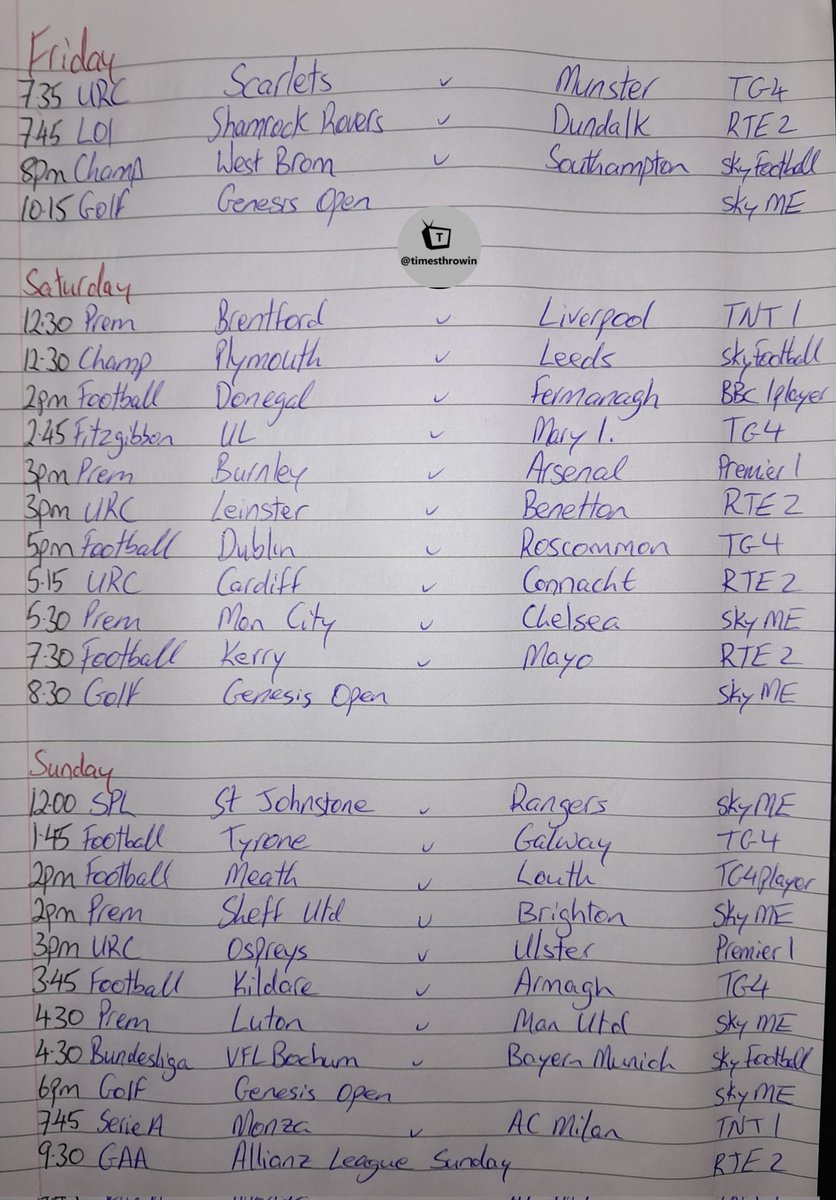 Friday
7.35 URC Scarlets v Munster TG4
7.45 LOI Shamrock Rovers v Dundalk RTE 2
8pm Champ West Brom v Southampton Sky Football
10.15 Golf Genesis Open Sky ME
T
@timesthrowin
Saturday
12.30 Prem Brentford v Liverpool TNT 1
12.30 Champ Plymouth v Leeds Sky Football
2pm Football Donegal v Fermanagh BBC Iplayer
2.45 Fitzgibbon UL v Mary I. TG4
3pm Prem Burnley v Arsenal Premier 1
3pm URC Leinster v Benetton RTE 2
5pm Football Dublin v Roscommon TG4
5.15 URC Cardiff v Connacht RTE 2
5.30 Prem Man City v Chelsea Sky ME
7.30 Football Kerry v Mayo RTE 2
8.30 Golf Genesis Open Sky ME
Sunday
12.00 SPL St Johnstone v Rangers Sky ME
1.45 Football Tyrone v Galway TG4
2pm Football Meath v Louth TG4 player
2pm Prem Sheff Utd v Brighton Sky ME
3pm URC Ospreys v Ulster Premier 1
3.45 Football Kildare v Armagh TG4
4.30 Prem Luton v Man Utd Sky ME
4.30 Bundesliga VFL Bochum v Bayern Munich Sky Football
6pm Golf Genesis Open Sky ME
7.45 Serie A Monza v AC Milan TNT 1
9.30 GAA Allianz League Sunday RTE 2